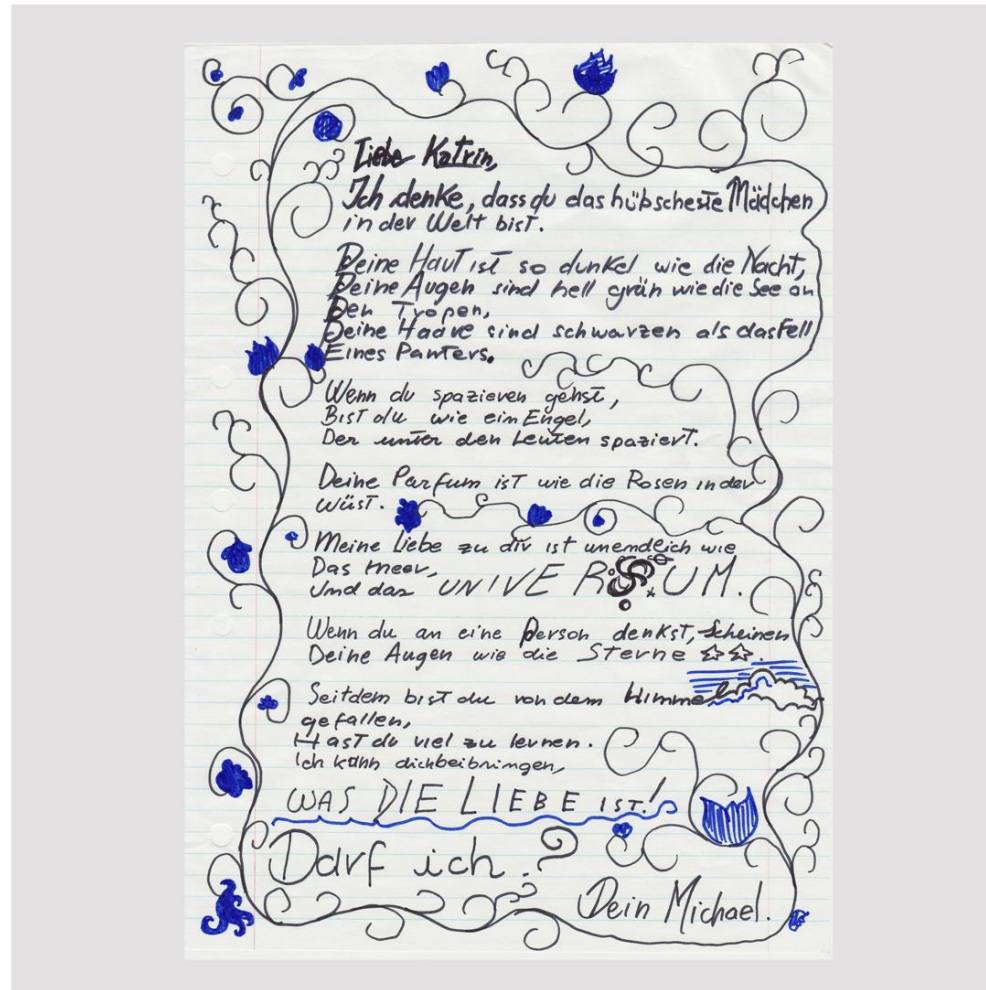 Liebe Katrin,
Ich denke, dass du das hübscheste Mädchen
in der Welt bist.
Deine Haut ist so dunkel wie die Nacht,
Deine Augen sind hell grün wie die See an
Den Tropen,
Deine Haare sind schwarzen als das Fell
Eines Panters.
Wenn du spazieren gehst,
Bist du wie ein Engel,
Der unter den Leuten spaziert.
Deine Parfum ist wie die Rosen in der
wüst.
Meine Liebe zu dir ist unendlich wie
Das meer,
Und das UNIVERSUM.
Wenn du an eine Person denkst, scheinen
Deine Augen wie die Sterne
Seitdem bist du von dem Himmel
gefallen,
Hast du viel zu lernen.
Ich kann dich beibringen,
WAS DIE LIEBE IST!
Darf ich?
Dein Michael.